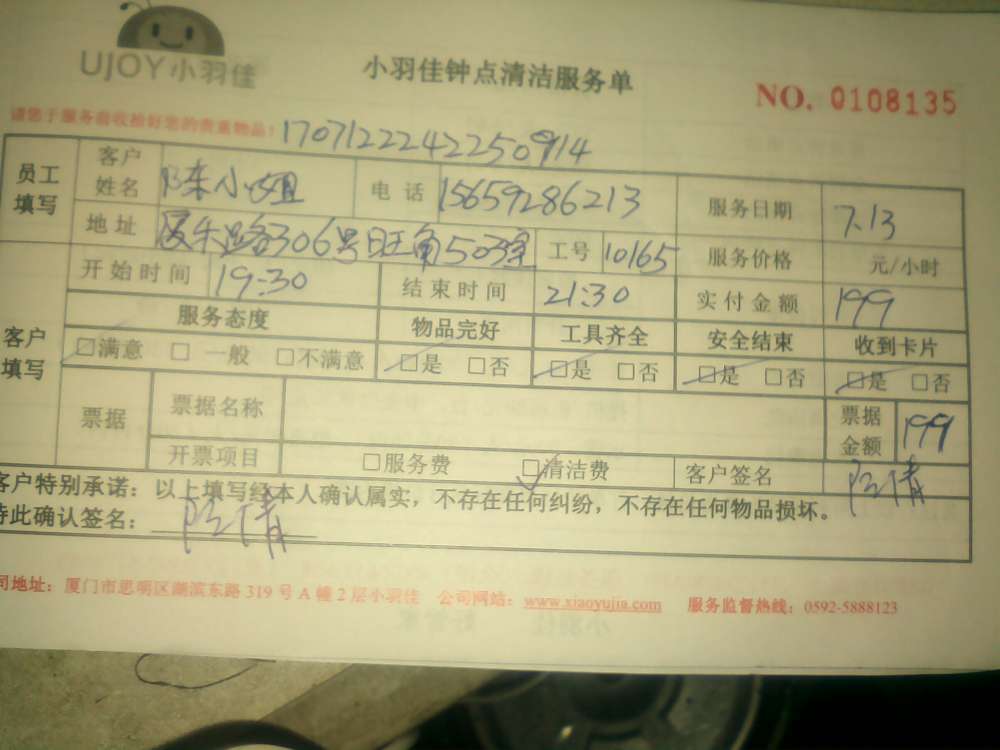 UJOY小羽佳
小羽佳钟点清洁服务单
NO. 0108135
请您于服务前收捡好您的贵重物品!
1707122242250914
员工填写 客户姓名 陈小姐 电话 15659286213 服务日期 7.13
地址 厦禾路306号旺角503室 工号 10165 服务价格 元/小时
开始时间 19:30 结束时间 21:30 实付金额 199
客户填写 服务态度 物品完好 工具齐全 安全结束 收到卡片
☑满意 □一般 □不满意 ☑是 □否 ☑是 □否 ☑是 □否 ☑是 □否
票据 票据名称 票据金额 199
开票项目 □服务费 ☑清洁费 客户签名 陈倩
客户特别承诺:以上填写经本人确认属实,不存在任何纠纷,不存在任何物品损坏。
特此确认签名: 陈倩
司地址:厦门市思明区湖滨东路 319 号 A 幢 2 层小羽佳 公司网站:www.xiaoyujia.com 服务监督热线:0592-5888123